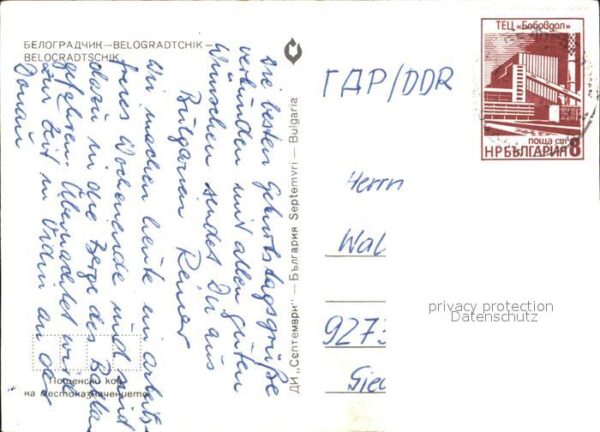 БЕЛОГРАДЧИК—BELOGRADTCHIK—
BELOCRADTSCHIK
Die besten Geburtstagsgrüße
verbunden mit allen guten
Wünschen sendet Dir aus
Bulgarien Reiner
Wir machen heute ein arbeits-
freies Wochenende und sind
dazu in die Berge des Balkan
gefahren. Übernachtet wird
zur Zeit in Vidin an der
Donau
Пощенски код
на местоназначението
ДИ „Септември" — България Septemvri — Bulgaria
ТЕЦ „Бобовдол"
поща ст
НРБЪЛГАРИЯ 8
ГДР/DDR
Herrn
Wal
927
Sie
privacy protection
Datenschutz